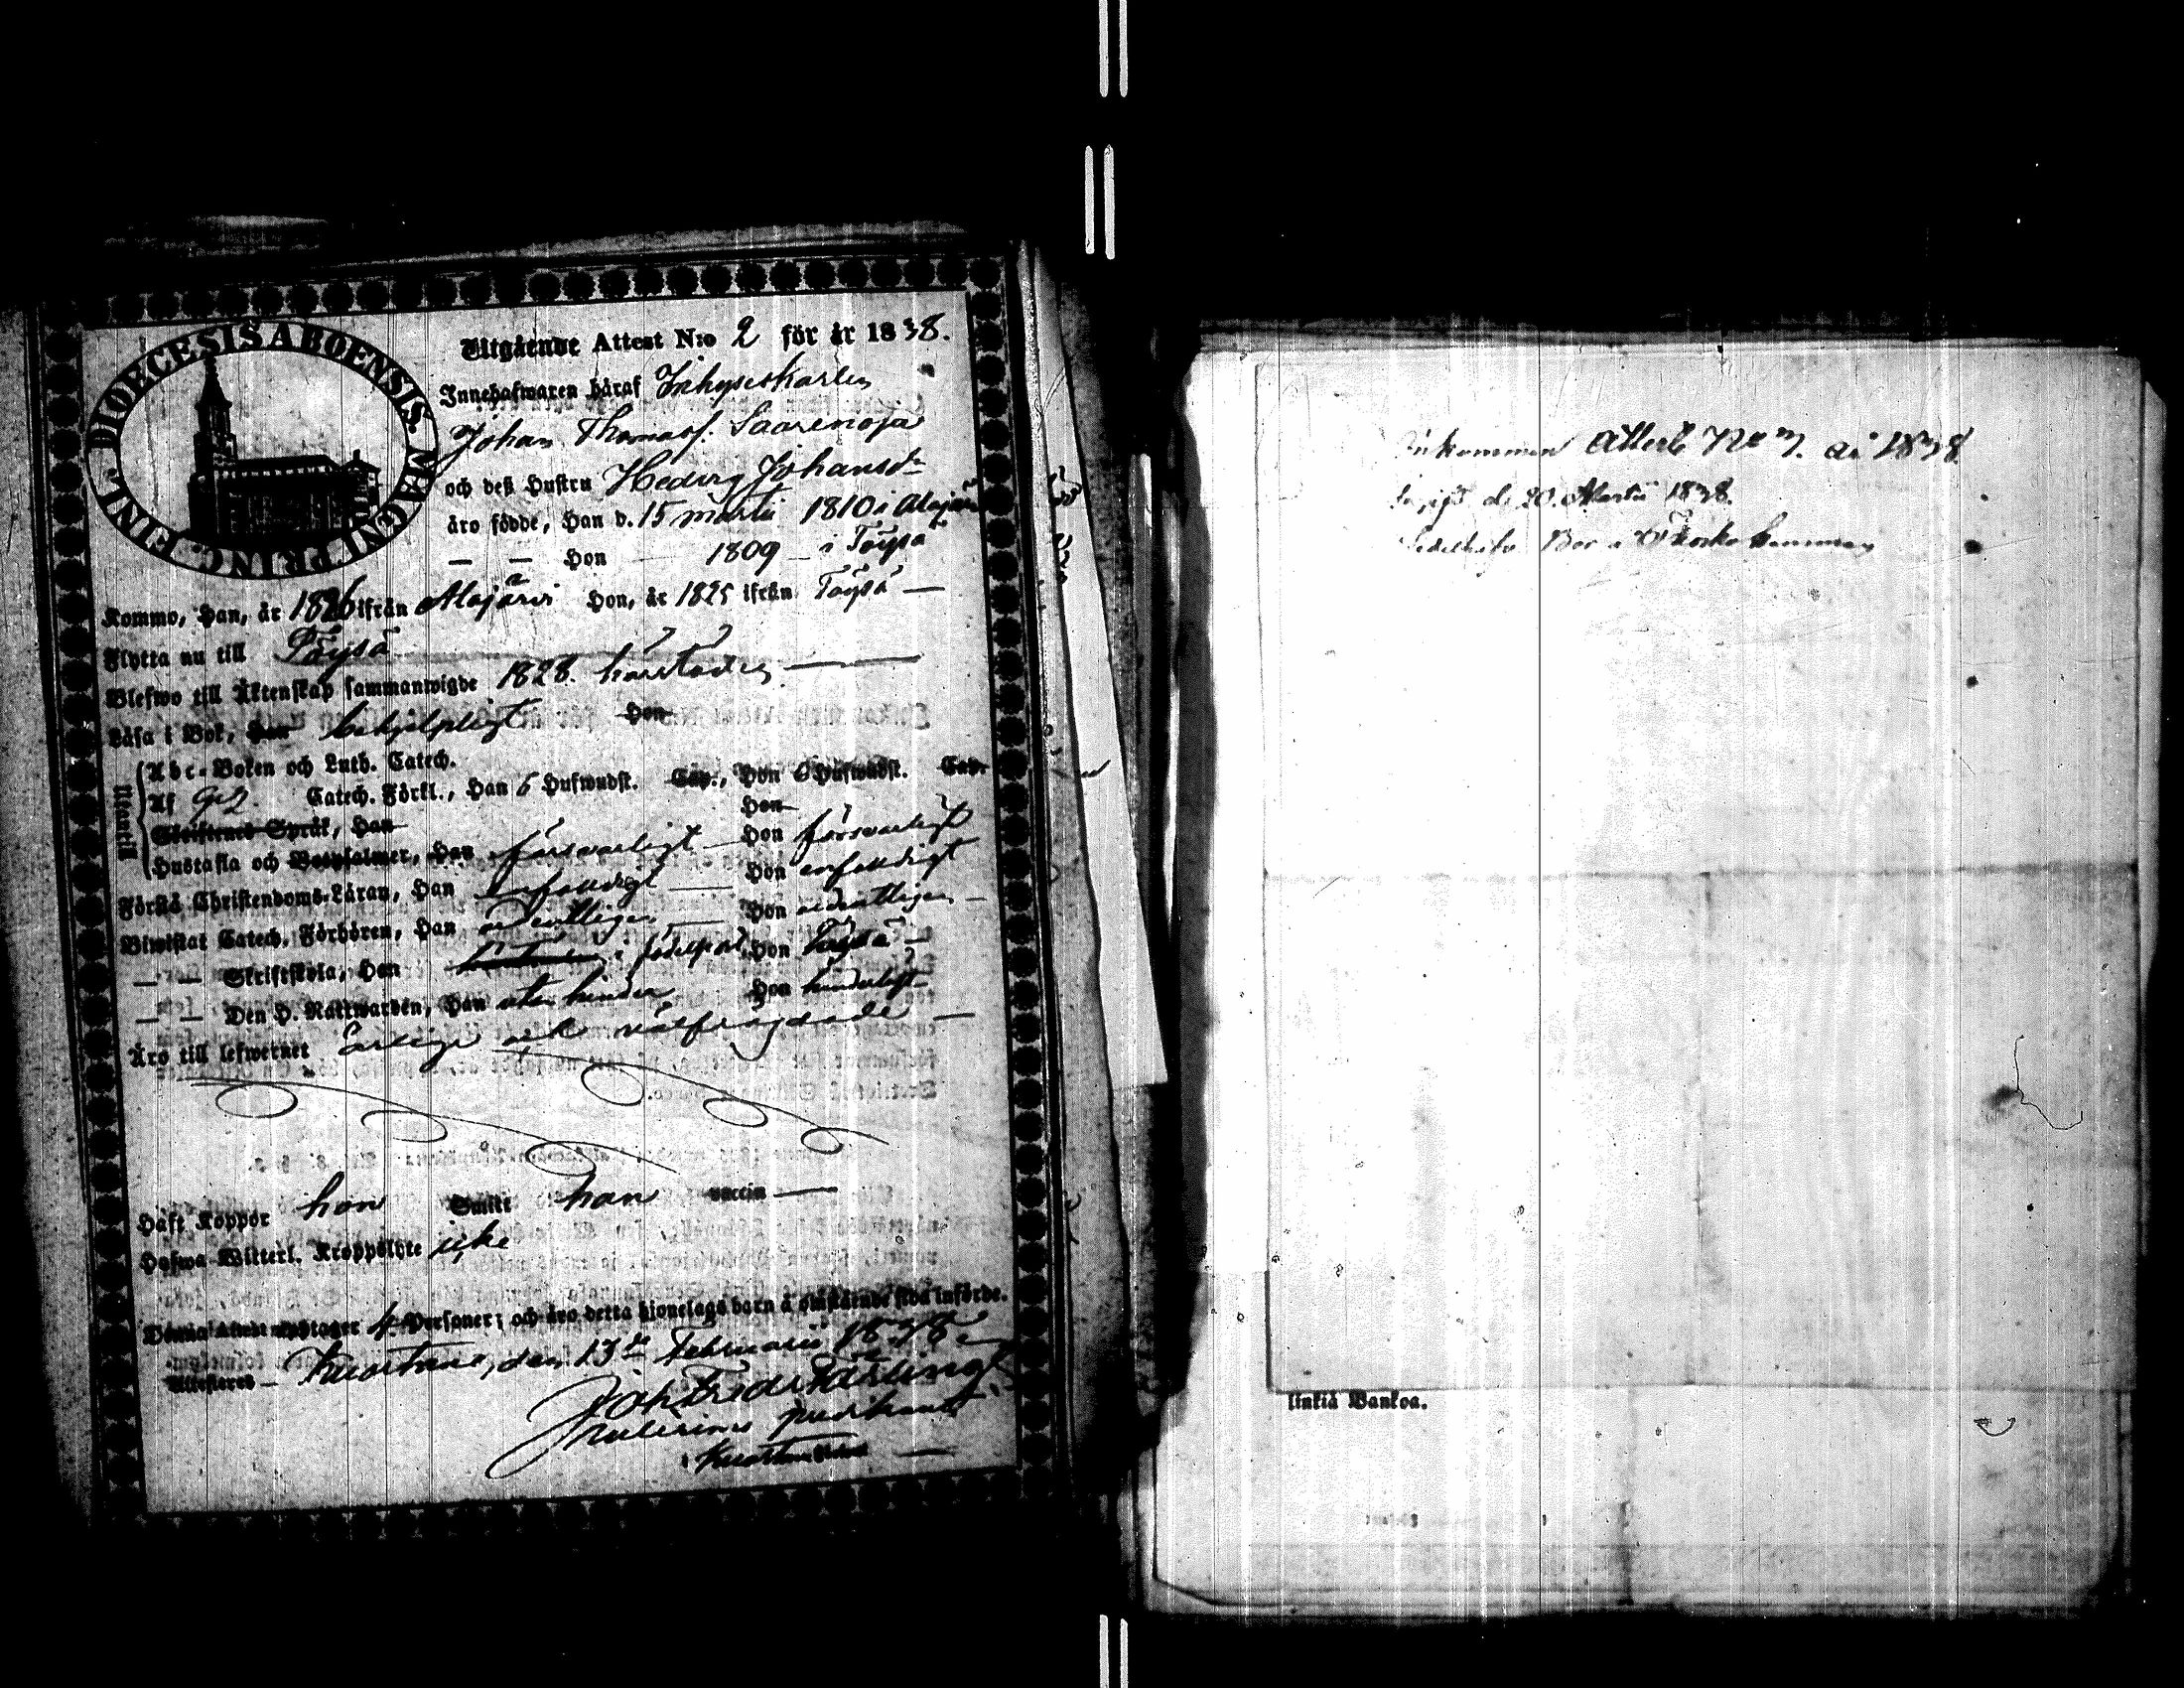 DIOECESIS ABOENSIS. MAGNI PRINC. FINL.
Utgående Attest N:o 2 för år 1838.
Innehafwaren häraf Inhyseskarlen
Johan Thomass. Saarenoja
och deß Hustru Hedvig Johansdr
äro födde, Han d. 15 Martii 1810 i Alajärvi
— — Hon 1809 — i Töysä
Kommo, Han, år 1826 ifrån Alajärvi Hon, år 1825 ifrån Töysä —
Flytta nu till Töysä
Blefwo till Äktenskap sammanwigde 1828. härstädes —
Läsa i Bok, Han behjelpligt Hon
Abc-Boken och Luth. Catech.
Af Catech. Förkl., Han 6 Hufwudst. Cap., Hon 6 Hufwudst. Cap.
Christenes Språk, Han Hon
Hustafla och Botpsalmer, Han försvarligt — Hon försvarligt
Förstå Christendoms-Läran, Han enfaldigt — Hon enfaldigt
Biwistat Catech. Förhören, Han ordentligen — Hon ordentligen —
— — Skriftskola, Han i födelseort, Hon Töysä —
— — Den H. Nattwarden, Han utan hinder Hon hinderlöst —
Äro till lefwernet ärliga och välfrägdade —
Haft Koppor hon Smitt han vaccin —
Hafwa Witterl. Kroppslyte icke
Denna Attest upptager 4 Personer; och äro detta hjonelags barn å omstående sida införde.
Attesteras — Kuortane, den 13de Februarii 1838.
Joh. Fredr.
predikant
i Kuortane —
Inkommen Attest No 7. år 1838
d. 20. Martii 1838.
Bor i
linkiä Bankoa.